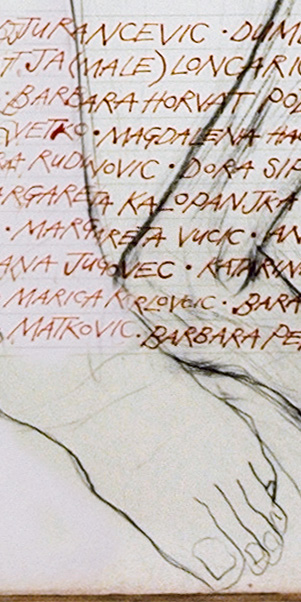 JURANCEVIC · DUM
JA (MALE) LONCARIC
· BARBARA HORVAT POP
CVETKO · MAGDALENA HA
RA RUDNOVIC · DORA SIP
ARGARETA KALOPANJKA
· MARGARETA VUCIC · AN
ANA JUGOVEC · KATARIN
· MARICA KRLOVCIC · BARA
MATKOVIC · BARBARA PE